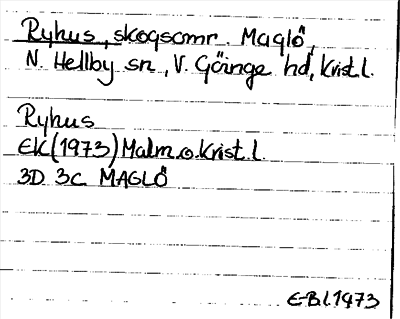 Ryhus, skogsomr. Maglö,
N. Mellby sn, V. Göinge hd, Krist.l.
Ryhus
EK(1973) Malm.o.Krist.l.
3D 3C MAGLÖ
E-Bl.1973